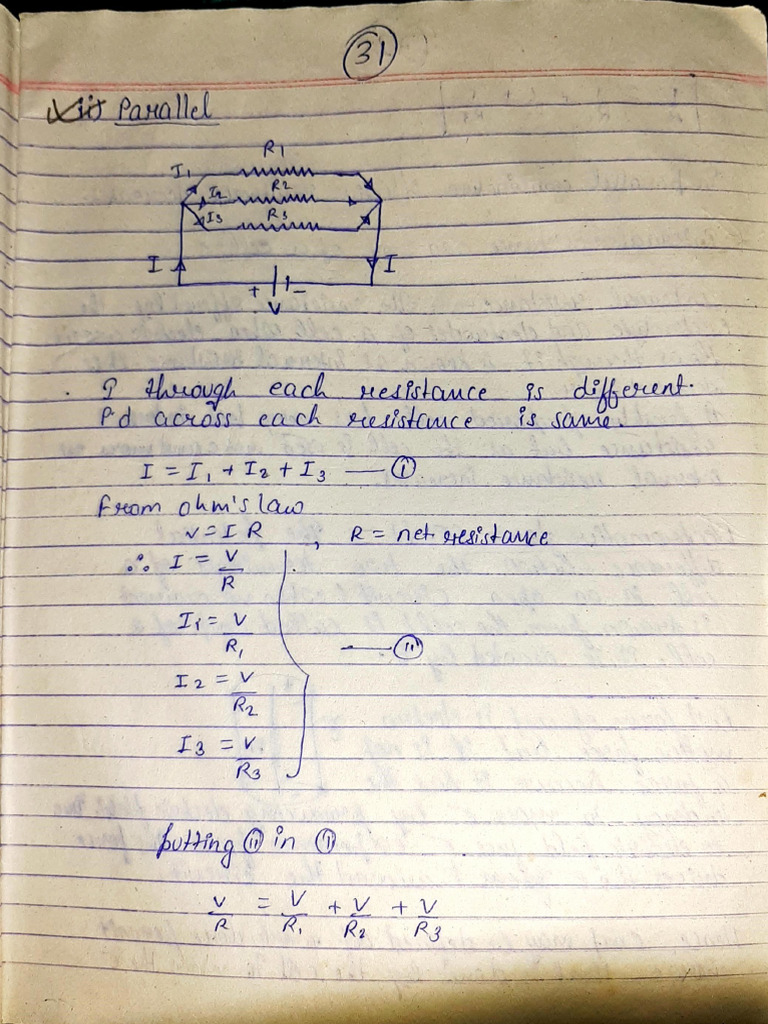 31
ii) Parallel
R1
I1
R2
I2
R3
I3
I
I
+ -
V
I through each resistance is different.
Pd across each resistance is same.
I = I1 + I2 + I3 — (i)
From ohm's law
V = I R , R = net resistance
∴ I = V/R
I1 = V/R1
— (ii)
I2 = V/R2
I3 = V/R3
putting (ii) in (i)
V/R = V/R1 + V/R2 + V/R3